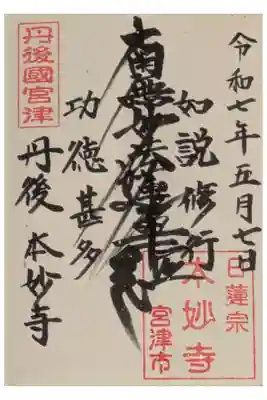 令和七年五月七日
如説修行
南無妙法蓮華経
功徳甚多
丹後 本妙寺
丹後國宮津
日蓮宗
本妙寺
宮津市